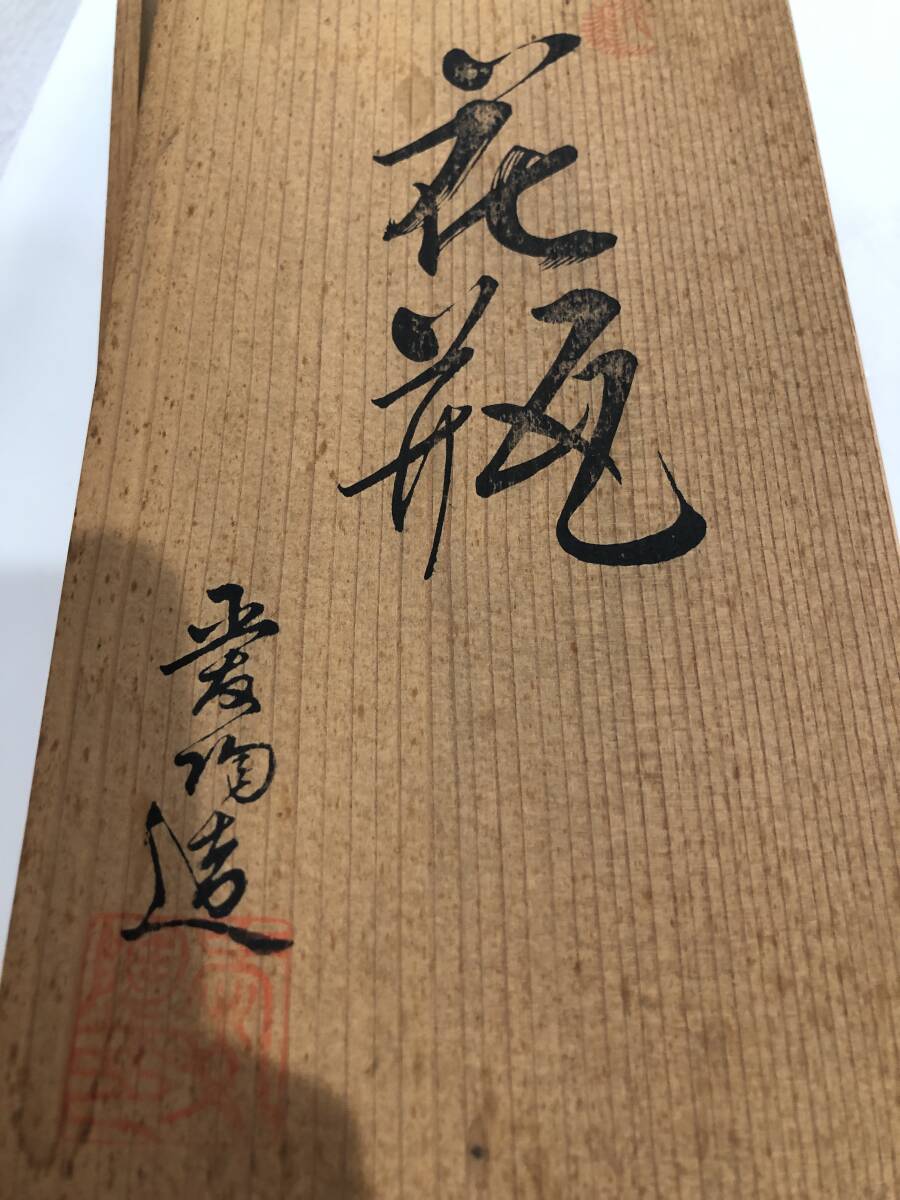 花瓶
愛陶造